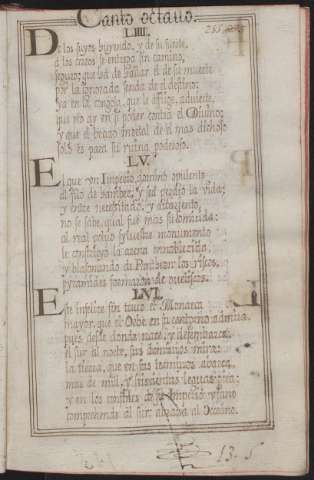 Canto octauo.
255
LIIII.
De los suyos huyendo, y de su suerte,
à los cerros se entrega sin camino,
seguro; que ha de hallar el de su muerte
por la ignorada senda de el destino:
ya en la congoja, que le aflige, aduierte,
que no ay en si poder contra el Diuino;
y que el brazo mortal de el mas dichoso
solo es para su ruina poderoso.
LV.
El que vn Imperio dominò opulento
al filo de hambre, y sed perdiò la vida;
y entre necessitado, y
no se sabe, qual fue mas su homicida:
al real poluo syluestre monumento
le construyò la arena ennoblecida,
y blasonando de Pantheon los riscos,
pyramides formaron de obeliscos.
LVI.
Este infelice fin tuuo el Monarca
mayor, que el Orbe en su contorno admira
pues desde donde nace, y desembarca
el sur al norte, sus dominios mira:
la tierra, que en sus terminos abarca,
mas de mil, y seiscientas leguas gira;
y en los confines de su Imperio vfano
comprehende al sur, abraza al Oceano.
13. 5